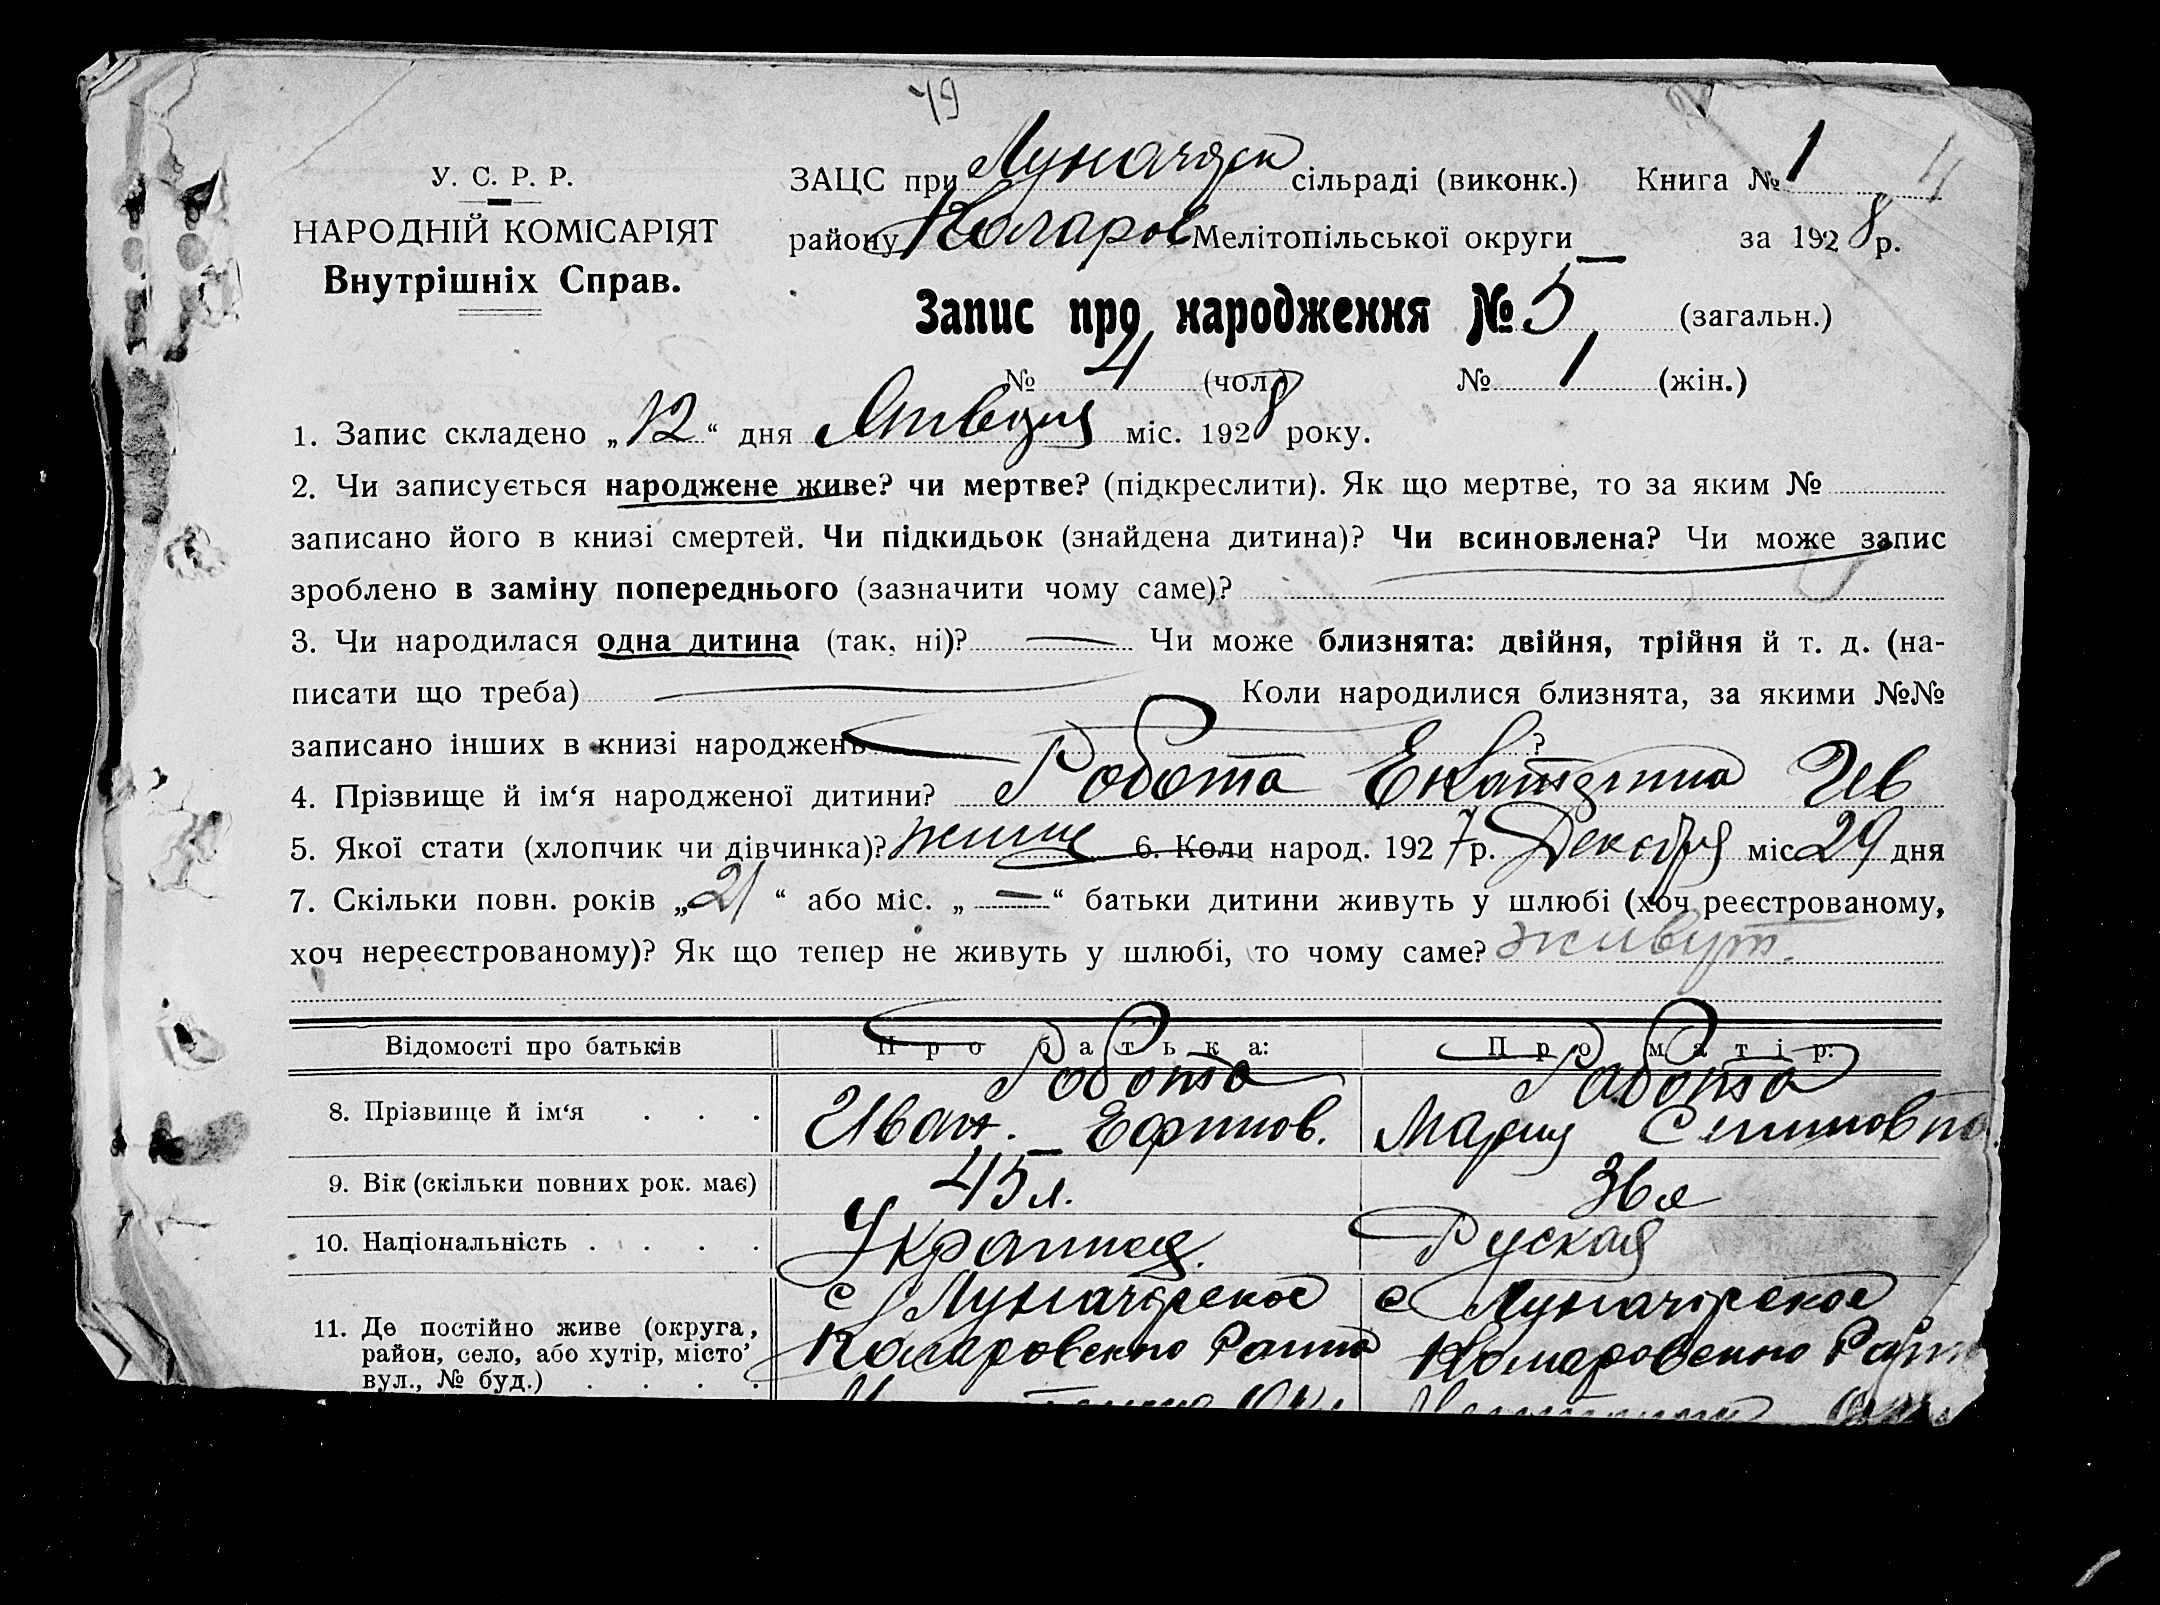 У. С. Р. Р.
НАРОДНІЙ КОМІСАРІЯТ
Внутрішніх Справ.
ЗАЦС при Луначарск сільраді (виконк.) Книга № 1
району Коларов Мелітопільської округи за 1928 р.
Запис про народження № 5 (загальн.)
№ 4 (чол.) № 1 (жін.)
1. Запис складено „12“ дня Января міс. 1928 року.
2. Чи записується народжене живе? чи мертве? (підкреслити). Як що мертве, то за яким №
записано його в книзі смертей. Чи підкидьок (знайдена дитина)? Чи всиновлена? Чи може запис
зроблено в заміну попереднього (зазначити чому саме)?
3. Чи народилася одна дитина (так, ні)? — Чи може близнята: двійня, трійня й т. д. (на-
писати що треба) — Коли народилися близнята, за якими №№
записано інших в книзі народжень ?
4. Прізвище й ім‘я народженої дитини? Робота Екатерина Ив
5. Якої стати (хлопчик чи дівчинка)? 6. Коли народ. 1927 р. Декабря міс 29 дня
7. Скільки повн. років „21“ або міс. „—“ батьки дитини живуть у шлюбі (хоч реєстрованому,
хоч нереєстрованому)? Як що тепер не живуть у шлюбі, то чому саме? живут.
Відомості про батьків Про батька: Про матір:
Робота Работа
8. Прізвище й ім‘я . . . Иван. Ефимов. Мария Семиновна
9. Вік (скільки повних рок. має) 45 л. 36 л
10. Національність . . . . Руская
с Луначарское с Луначарское
11. Де постійно живе (округа,
район, село, або хутір, місто, Коларовского Комаровского
вул., № буд.) . . . .